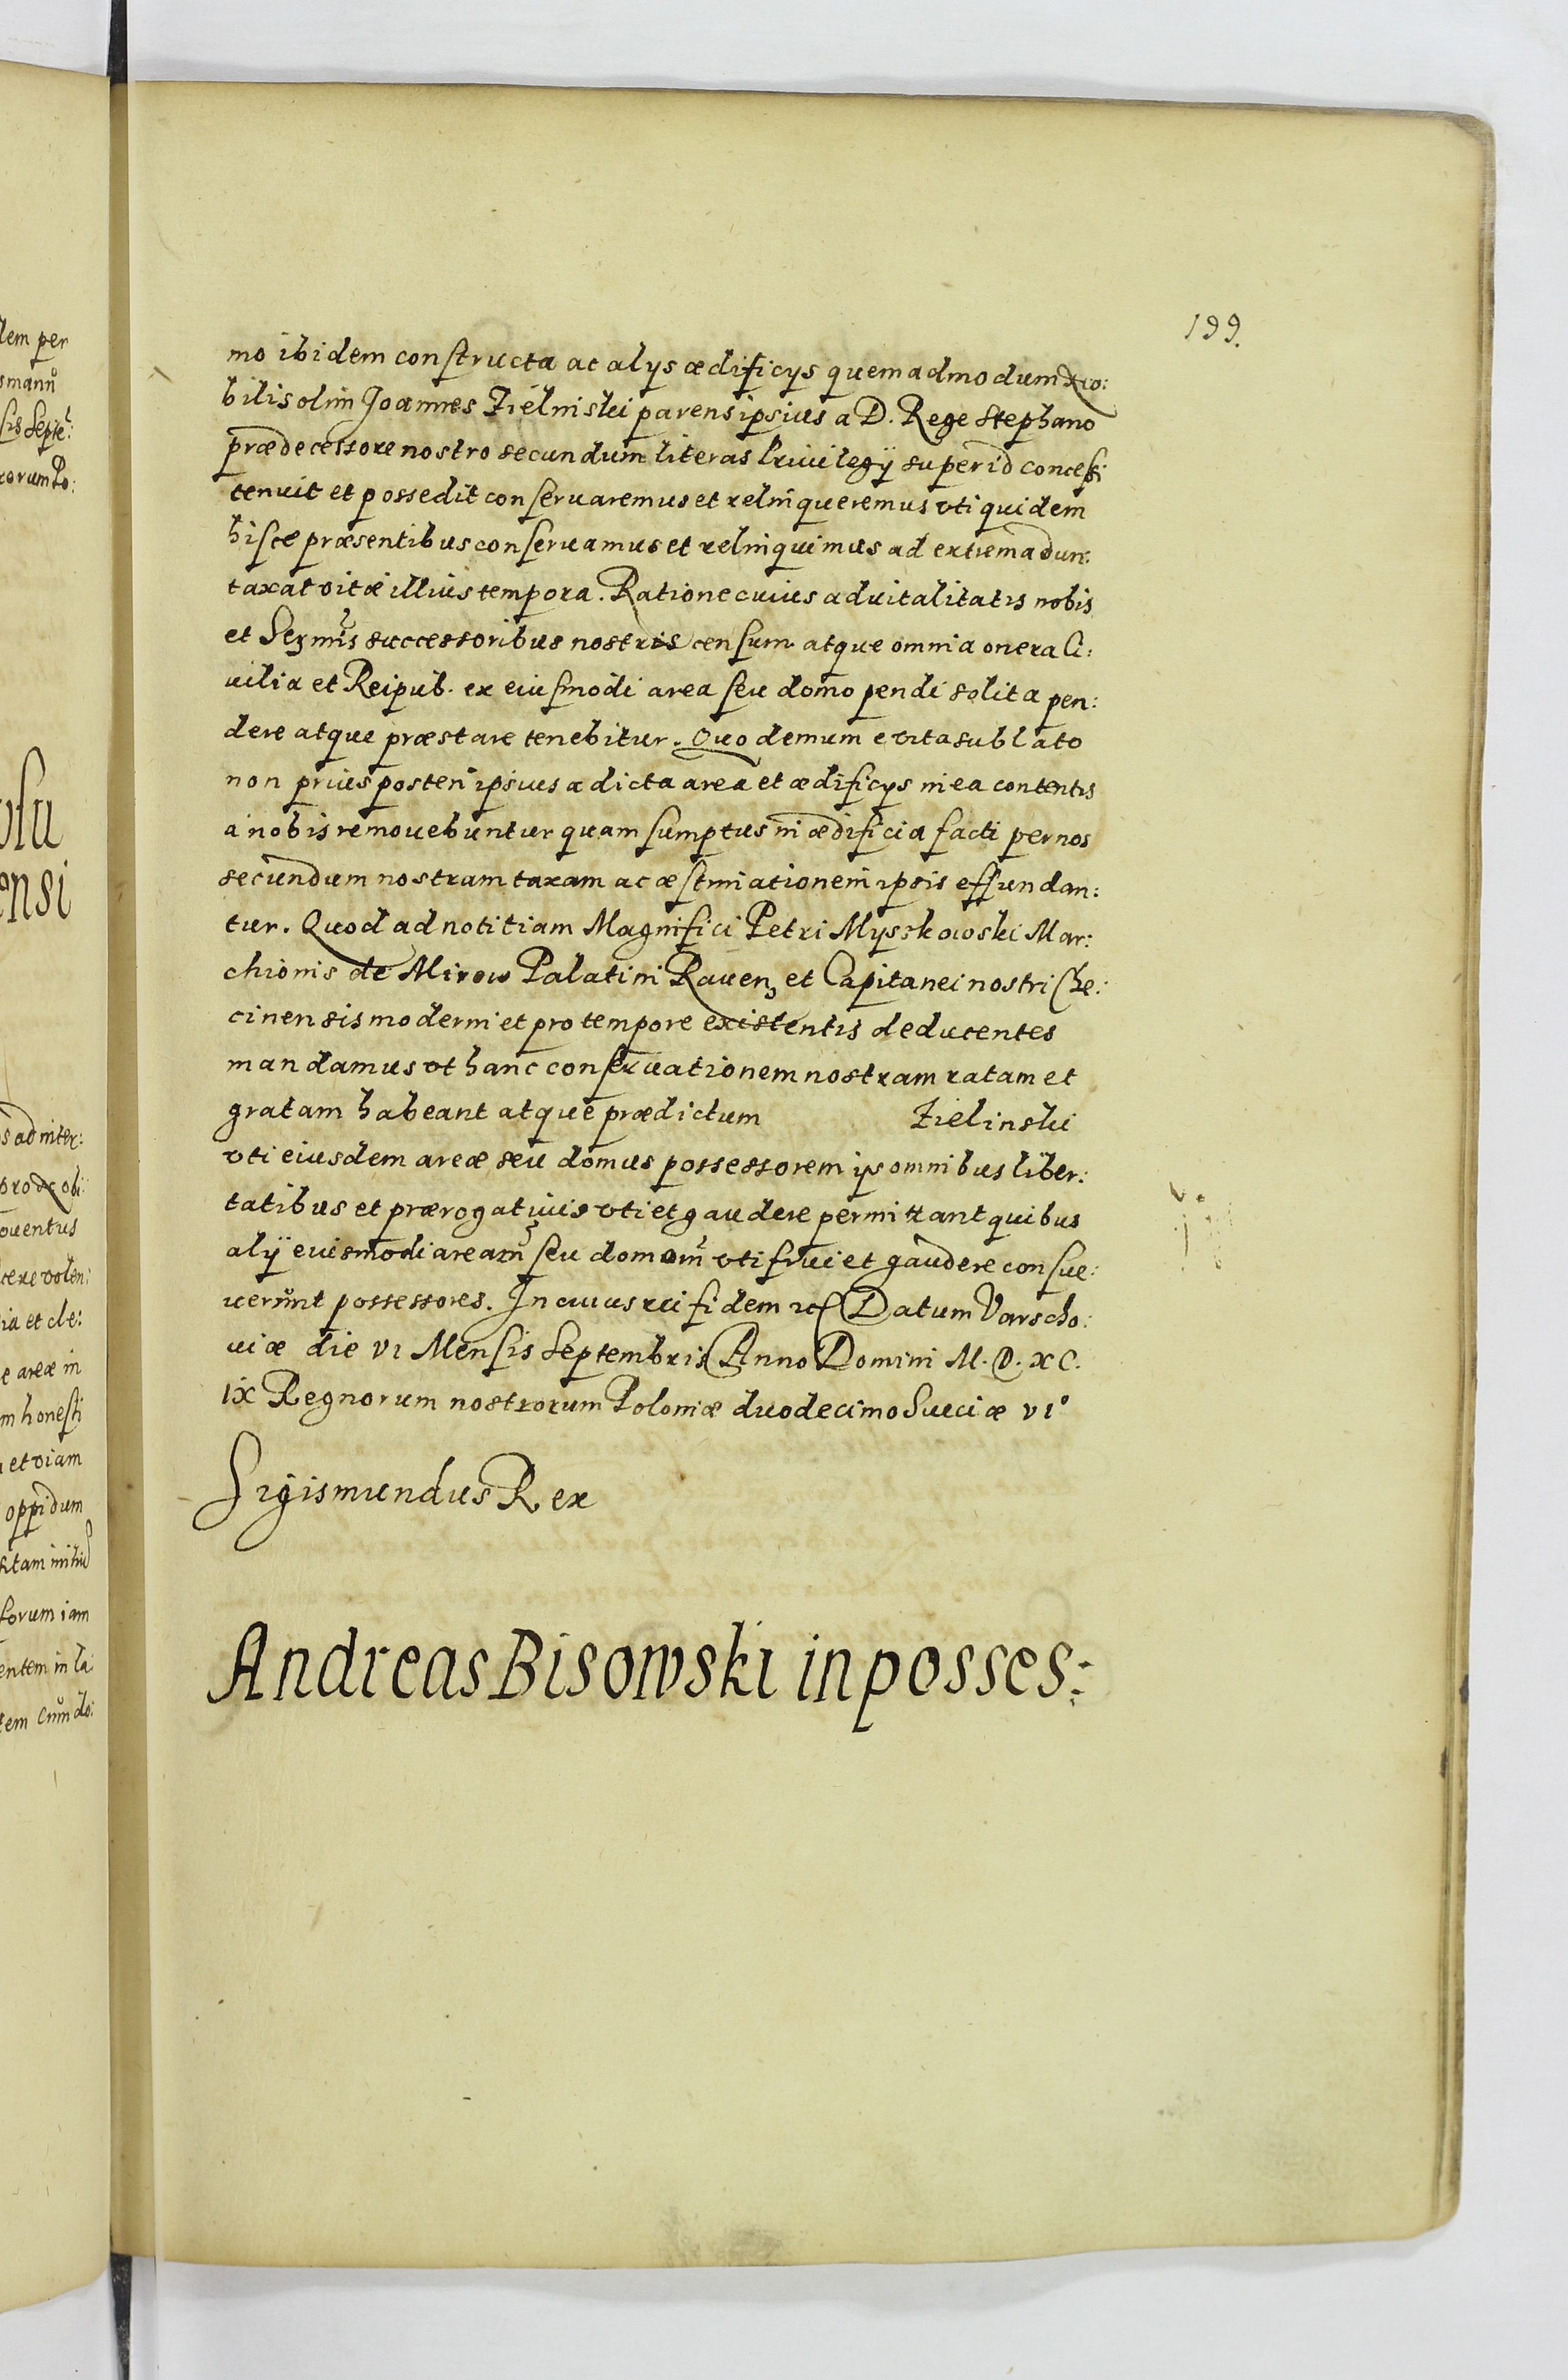 199.
mo ibidem constructa ac alys ædificys quemadmodum No:
bilis olim Joannes Zielniski parens ipsius a D. Rege Stephano
prædecessore nostro secundum literas Priuilegÿ super id concessi
tenuit et possedit conseruaremus et relinqueremus vti quidem
hisce præsentibus conseruamus et relinquimus ad extrema dun:
taxat vitæ illius tempora. Ratione cuius aduitalitatis nobis
et Sermis successoribus nostris censum atque omnia onera Ci:
uilia et Reipub. ex eiusmodi area seu domo pendi solita pen:
dere atque præstare tenebitur. Quo demum e vita sublato
non prius posteri ipsius a dicta area et ædificys in ea contentis
a nobis remouebuntur quam sumptus in ædificia facti per nos
secundum nostram taxam ac æstimationem ipsis effundan:
tur. Quod ad notitiam Magnifici Petri Mysskowski Mar:
chionis de Mirow Palatini Rauen3 et Capitanei nostri Che:
cinensis moderni et pro tempore existentis deducentes
mandamus vt hanc conseruationem nostram ratam et
gratam habeant atque prædictum Zielinski
vti eiusdem areæ seu domus possessorem ys omnibus liber:
tatibus et prærogatiuis vti et gaudere permittant quibus
alÿ eiusmodi arearu seu domoru vti frui et gaudere consue:
uerunt possessores. In cuius rei fidem etc Datum Varscho:
uiæ die VI Mensis Septembris Anno Domini M.D.XC.
IX Regnorum nostrorum Poloniæ duodecimo Sueciæ VI°
Sigismundus Rex
Andreas Bisowski in posses:
lem per
smanu
sis Septe:
rorum Po:
vsu
ensi
s ad inter:
pro Nobi:
ouentus
cere volen:
ia et cle:
e areæ in
m honesti
et viam
oppidum
forum iam
entem in la
tem cum do: